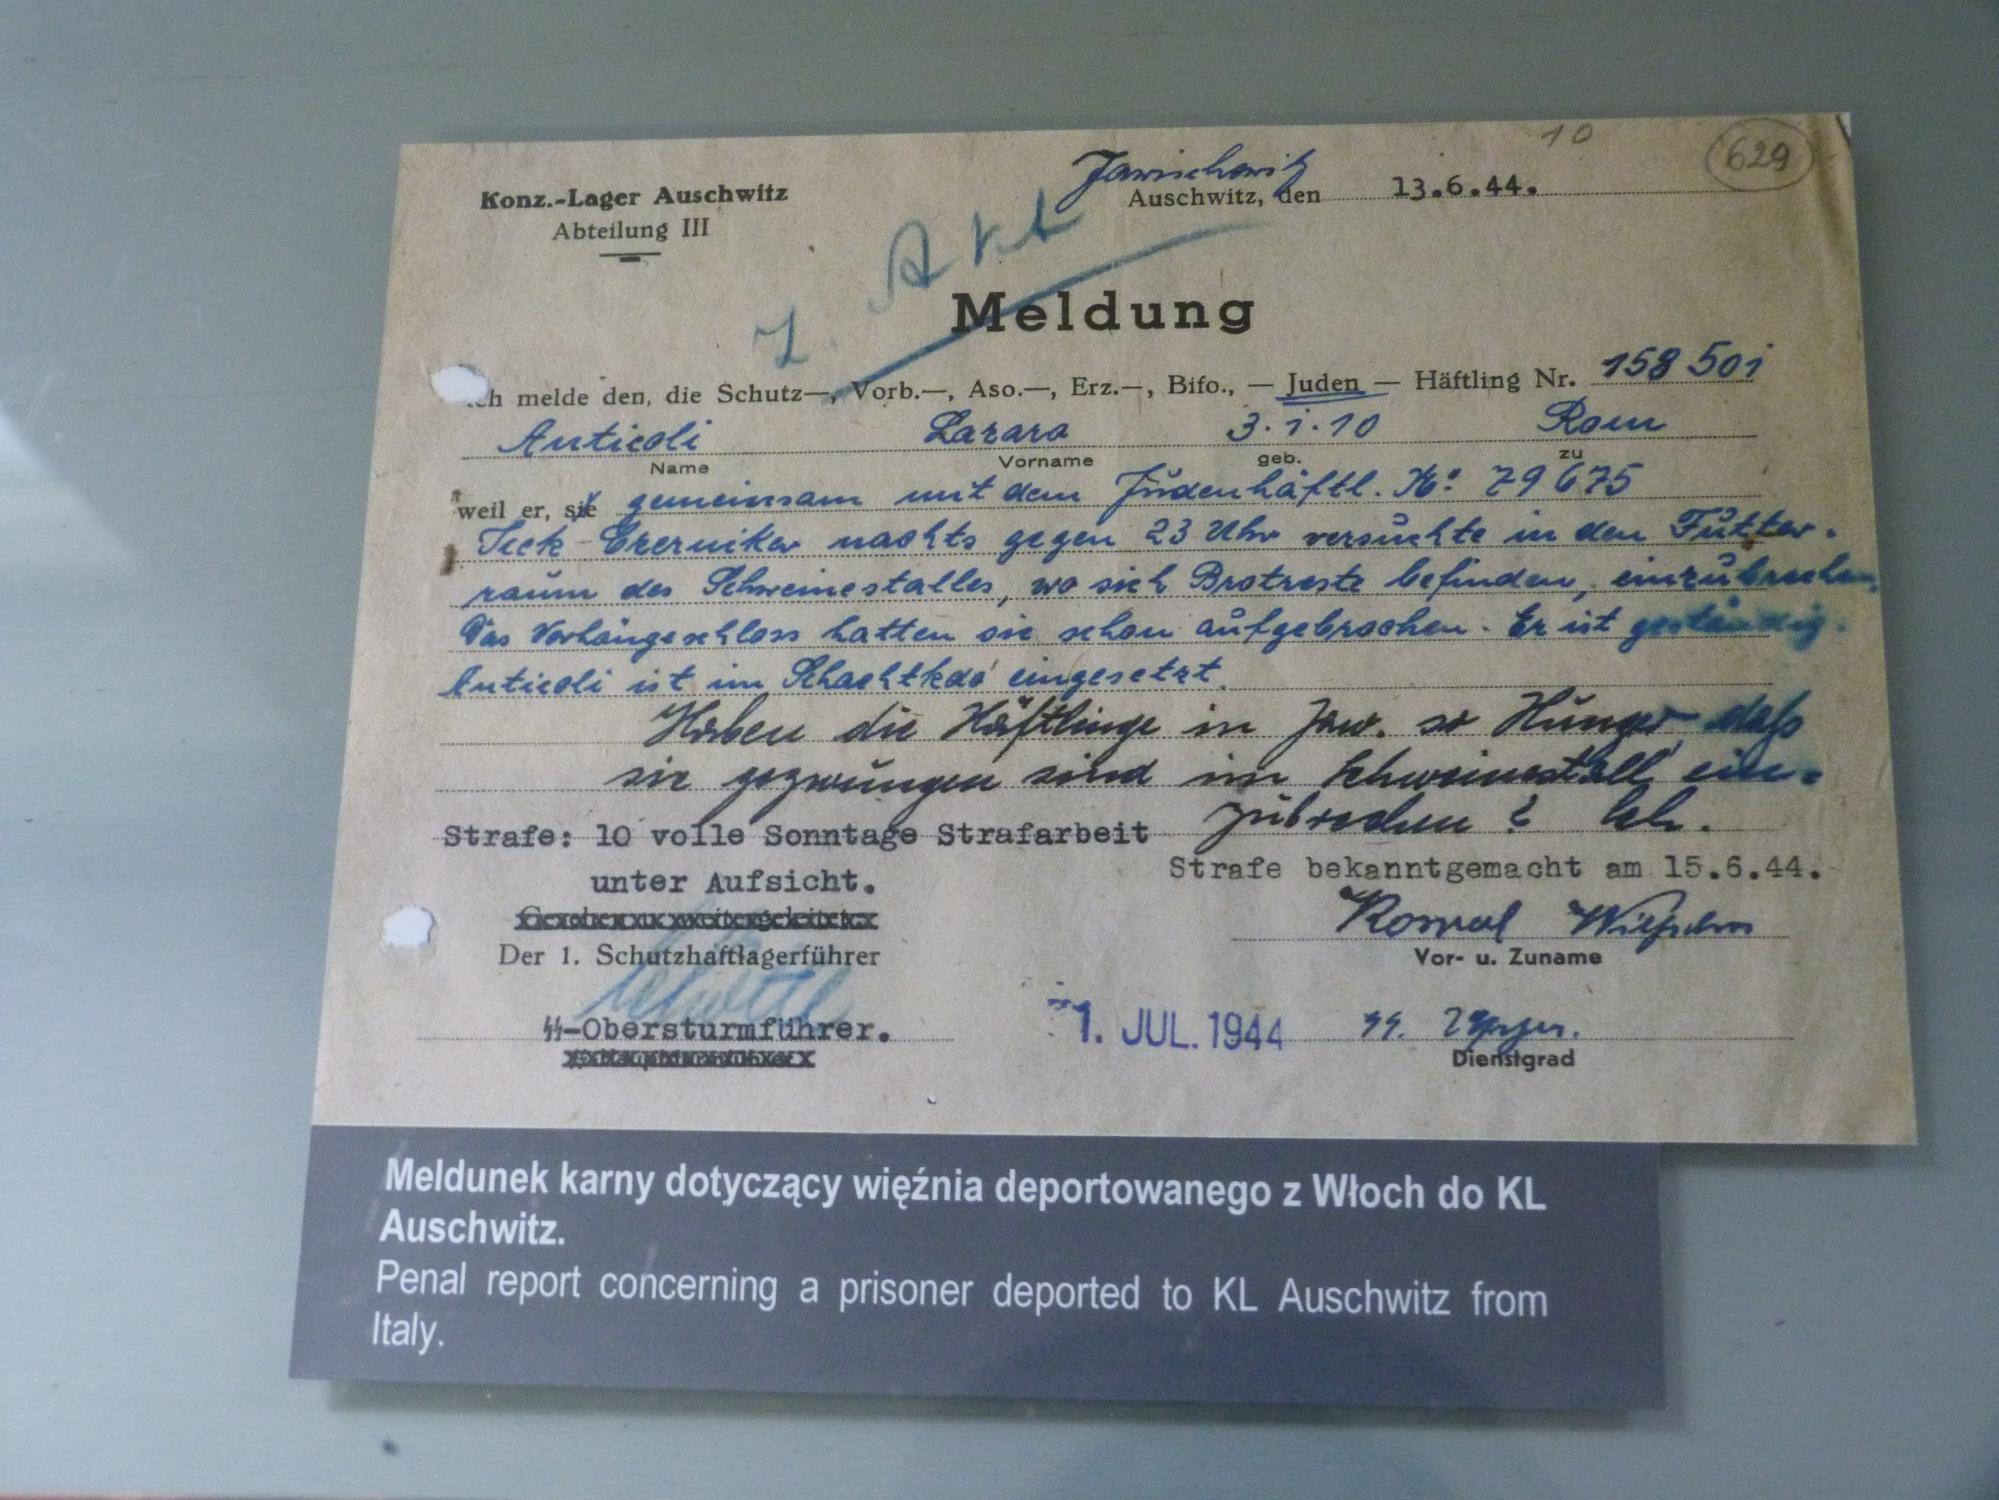 10
629
Jawischowitz
Konz.-Lager Auschwitz
Auschwitz, den 13.6.44.
Abteilung III
z. Akt
Meldung
ch melde den, die Schutz—, Vorb.—, Aso.—, Erz.—, Bifo., — Juden — Häftling Nr. 158501
Anticoli Lazaro 3.1.10 Rom
Name Vorname geb. zu
weil er, sie gemeinsam mit dem Judenhäftl. No 79675
Icek Czerniker nachts gegen 23 Uhr versuchte in den Futter-
raum des Schweinestalles, wo sich Brotreste befinden, einzubrechen.
Das Vorhängeschloss hatten sie schon aufgebrochen. Er ist geständig.
Anticoli ist im Schachtkdo eingesetzt.
Haben die Häftlinge in Jaw. so Hunger daß
sie gezwungen sind im Schweinestall ein-
zubrechen?
Strafe: 10 volle Sonntage Strafarbeit
unter Aufsicht.
Strafe bekanntgemacht am 15.6.44.
Der 1. Schutzhaftlagerführer
Vor- u. Zuname
SS-Obersturmführer.
1. JUL. 1944
SS.
Dienstgrad
Meldunek karny dotyczący więźnia deportowanego z Włoch do KL
Auschwitz.
Penal report concerning a prisoner deported to KL Auschwitz from
Italy.